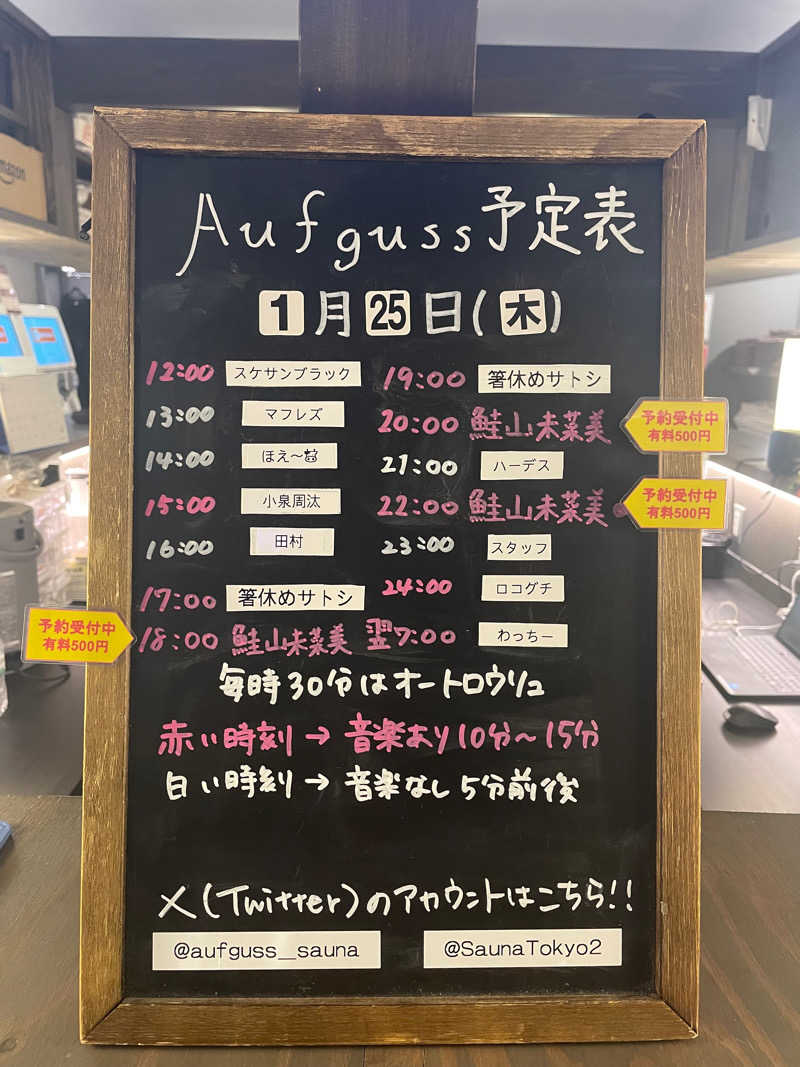 Aufguss予定表
1月25日(木)
12:00 スケサンブラック
13:00 マフレズ
14:00 ほえ〜
15:00 小泉周汰
16:00 田村
17:00 箸休めサトシ
予約受付中
有料500円
18:00 鮭山未菜美
19:00 箸休めサトシ
20:00 鮭山未菜美
予約受付中
有料500円
21:00 ハーデス
22:00 鮭山未菜美
予約受付中
有料500円
23:00 スタッフ
24:00 ロコグチ
翌7:00 わっちー
毎時30分はオートロウリュ
赤い時刻→音楽あり10分〜15分
白い時刻→音楽なし5分前後
X(Twitter)のアカウントはこちら!!
@aufguss__sauna
@SaunaTokyo2
amazon